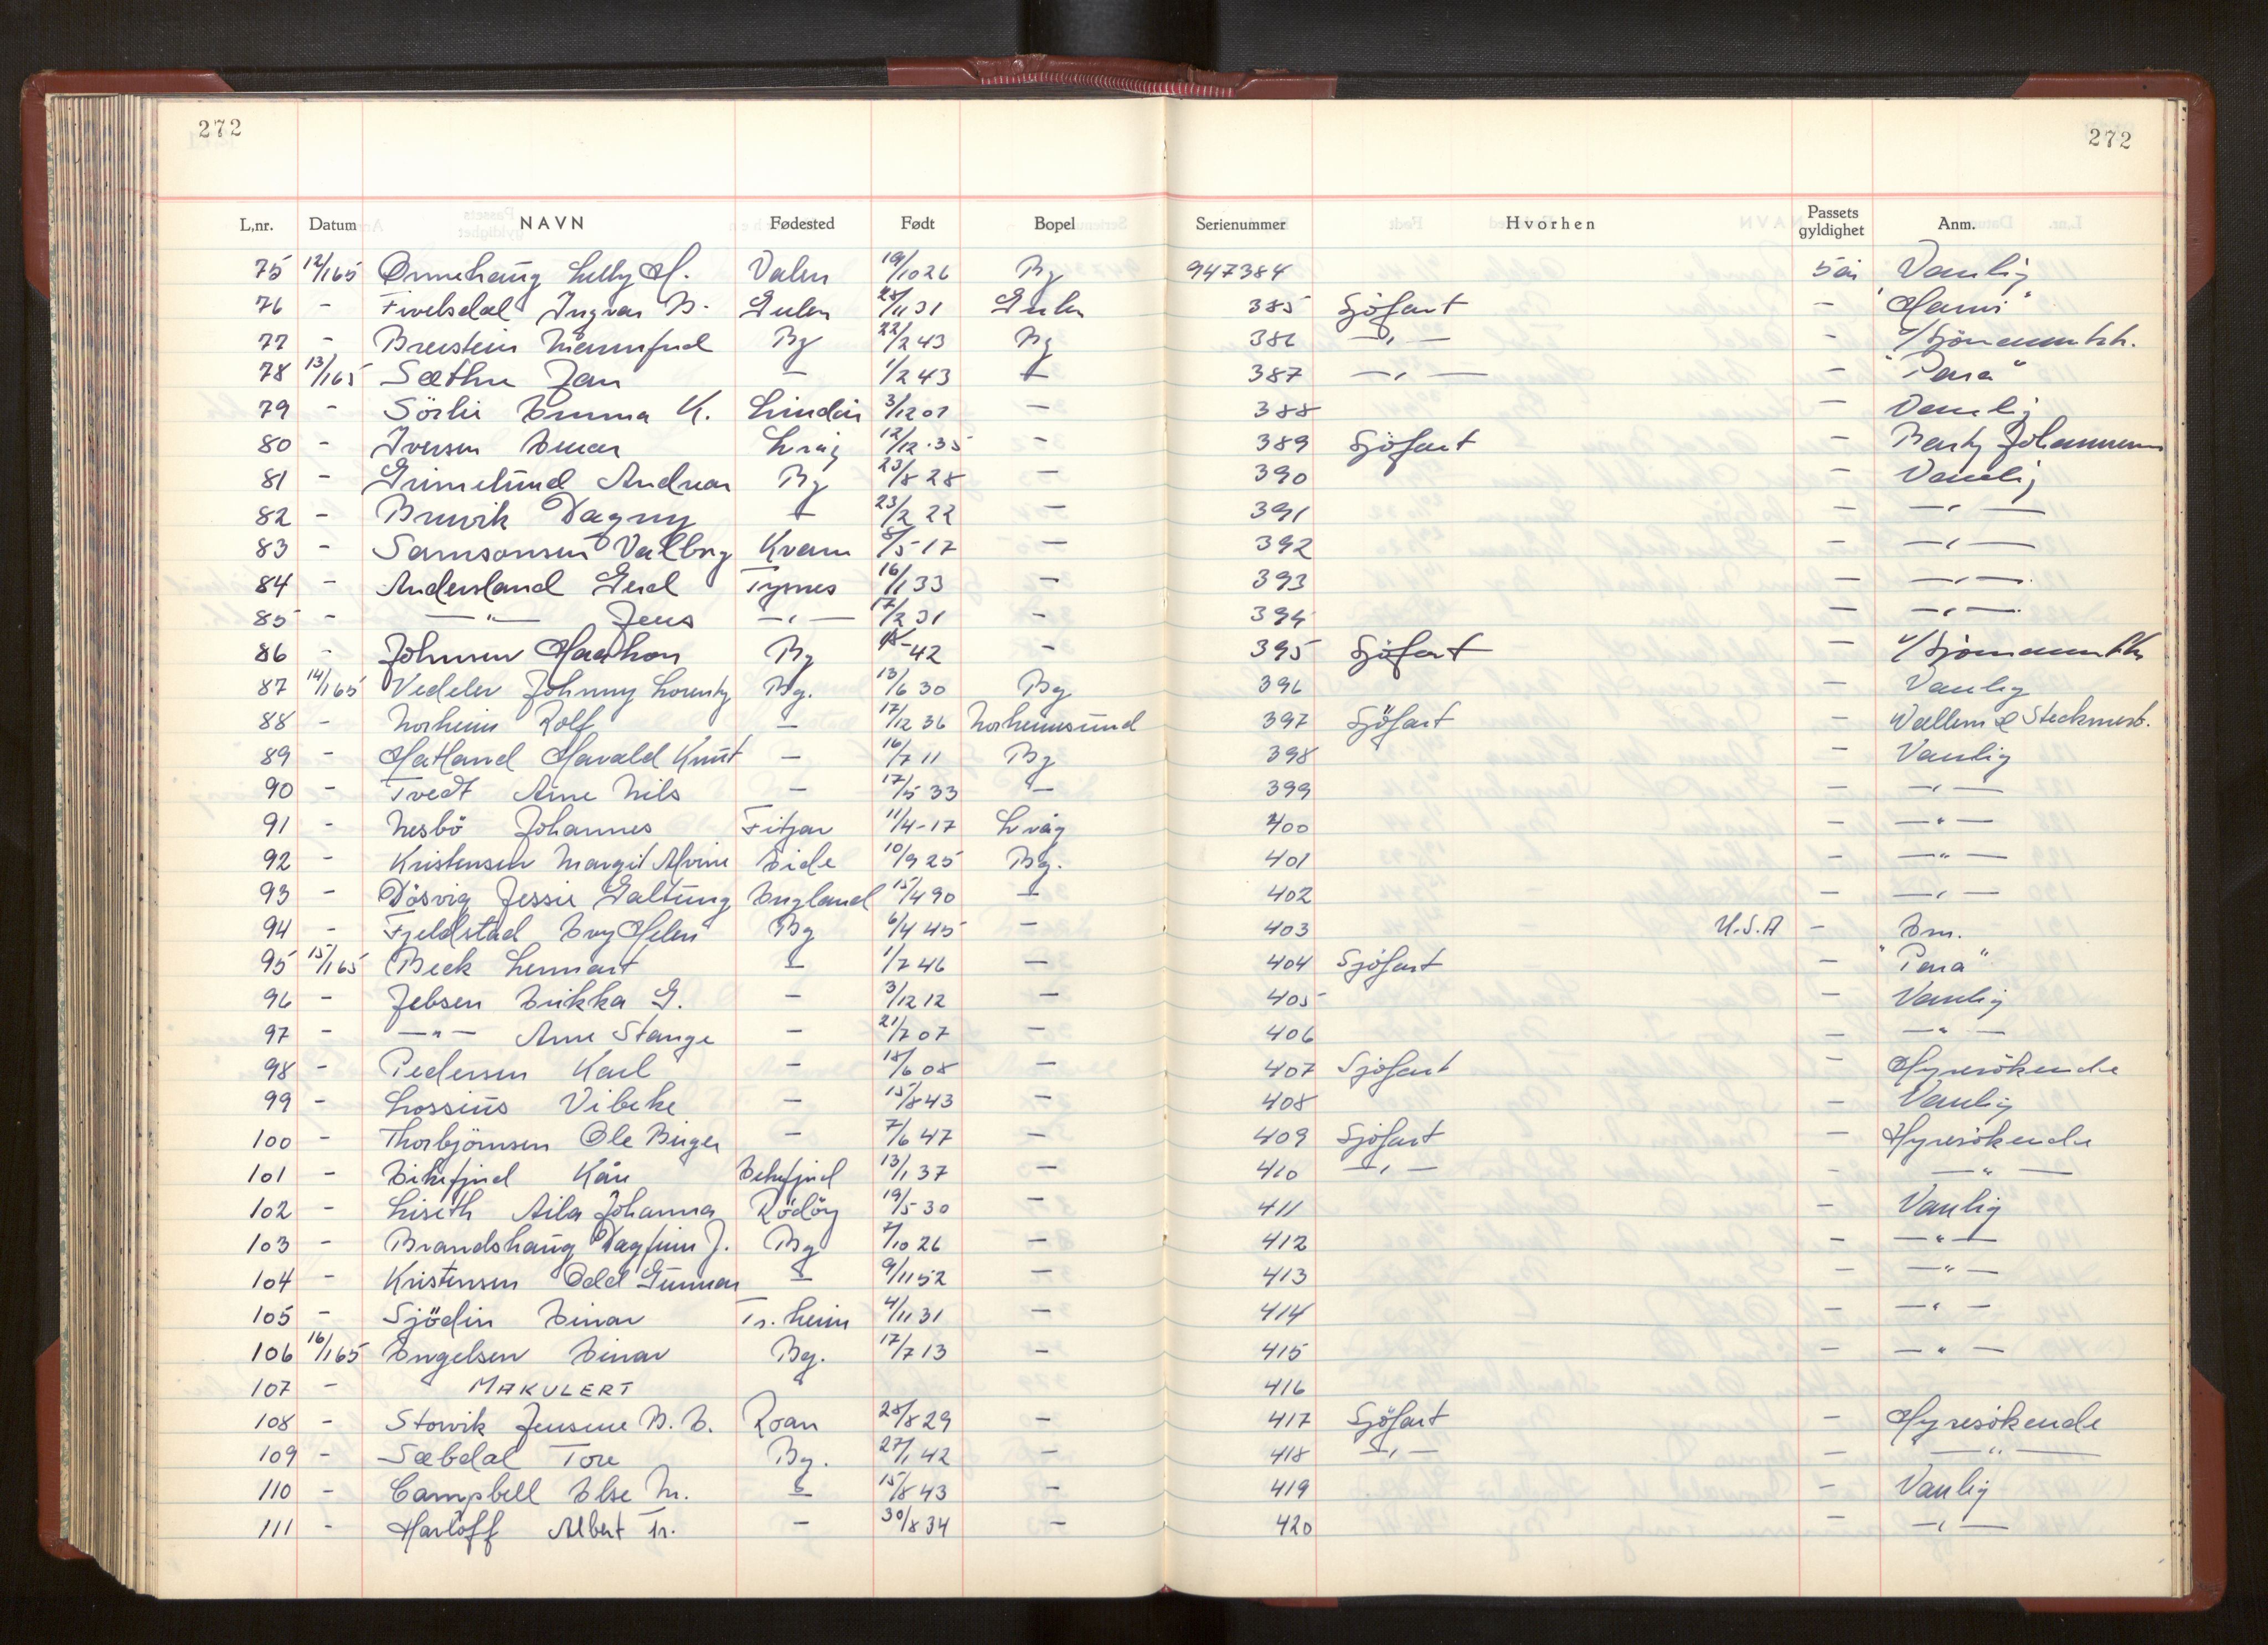 272 272
L,nr. Datum NAVN Fødested Født Bopel Serienummer Hvorhen Passets gyldighet Anm.
75 12/1 65 Ørnehaug Lilly H. Valen 19/10 26 Bg 947384 5 år Vanlig
76 - Fivelsdal Ingvar B. Gulen 28/11 31 Gulen 385 Sjöfart - "Hamri"
77 - Breistein Mannfred Bg 22/2 43 Bg 386 -"- - 1/Sjömannsbk.
78 13/1 65 Sæthre Jan - 1/2 43 - 387 -"- - "Para"
79 - Sörlie Emma K. Lindås 3/12 07 - 388 - Vanlig
80 - Iversen Einar Lvåg 12/12.35 - 389 Sjöfart - Bastz Johannesen
81 - Grimelund Andreas Bg 23/8 28 - 390 - Vanlig
82 - Bruvik Dagny - 23/2 22 - 391 - -"-
83 - Samsonsen Valborg Kvam 8/5-17 - 392 - -"-
84 - Andersland Gerd Tysnes 16/1 33 - 393 - -"-
85 - -"- Jens -"- 17/2 31 - 394 - -"-
86 - Johnsen Haakon Bg -42 - 395 Sjöfart - 1/Sjömannsbk
87 14/1 65 Vedeler Johnny Lorentz Bg. 13/6 30 Bg 396 - Vanlig
88 - Norheim Rolf - 17/12 36 Norheimsund 397 Sjöfart - Wallem & Steckmest.
89 - Hatland Harald Knut - 16/7 11 Bg 398 - Vanlig
90 - Tvedt Arne Nils - 17/5 33 - 399 - -"-
91 - Nesbö Johannes Fitjar 11/4-17 Lvåg 400 - -"-
92 - Kristensen Margit Alvine Eide 10/9 25 Bg. 401 - -"-
93 - Dösvig Jessie Galtung England 15/4 90 - 402 - -"-
94 - Fjeldstad Evy Helen Bg 6/4 45 - 403 U.S.A - Em.
95 15/1 65 Beck Lennart - 1/7 46 - 404 Sjöfart - "Para"
96 - Jebsen Erikka G. - 3/12 12 - 405 - Vanlig
97 - -"- Arne Stange - 21/7 07 - 406 - -"-
98 - Pedersen Karl - 18/6 08 - 407 Sjöfart - Hyresökende
99 - Lossius Vibeke - 15/8 43 - 408 - Vanlig
100 - Thorbjörnsen Ole Birger - 7/6 47 - 409 Sjöfart - Hyresökende
101 - Eikefjord Kåre Eikefjord 13/1 37 - 410 -"- - -"-
102 - Liseth Aila Johanna Rödöy 19/5 30 - 411 - Vanlig
103 - Brandshaug Dagfinn J. Bg 7/10 26 - 412 - -"-
104 - Kristensen Odd Gunnar - 9/11 52 - 413 - -"-
105 - Sjödin Einar Tr.heim 4/11 31 - 414 - -"-
106 16/1 65 Engelsen Einar Bg. 17/7 13 - 415 - -"-
107 - MAKULERT 416
108 - Storvik Jensine B. E. Roan 28/8 29 - 417 Sjöfart - Hyresökende
109 - Sæbdal Tore Bg. 27/1 42 - 418 -"- - -"-
110 - Campbell Else M. - 15/8 43 - 419 - Vanlig
111 - Harloff Albert Fr. - 30/8 34 - 420 - -"-